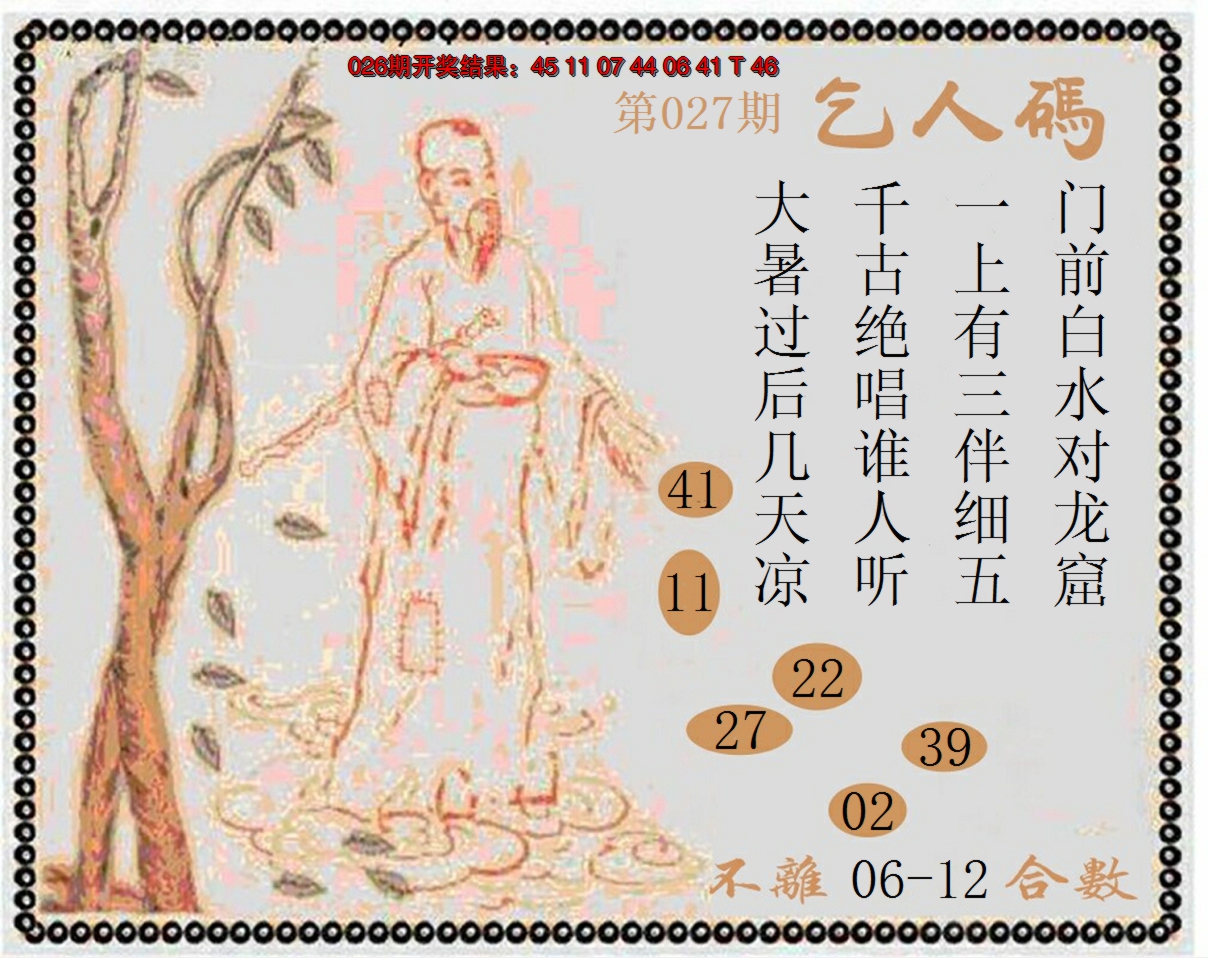 026期开奖结果：45 11 07 44 06 41 T 46
第027期 乞人碼
门前白水对龙窟
一上有三伴细五
千古绝唱谁人听
大暑过后几天凉
41
11
22
27
39
02
不離 06-12 合數